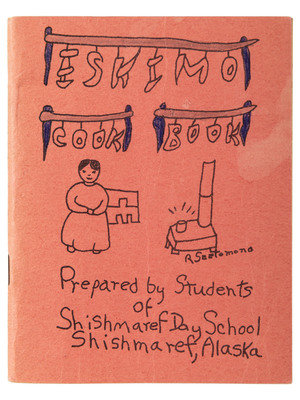 ESKIMO
COOK BOOK
R Seetomona
Prepared by Students
of
Shishmaref Day School
Shishmaref, Alaska